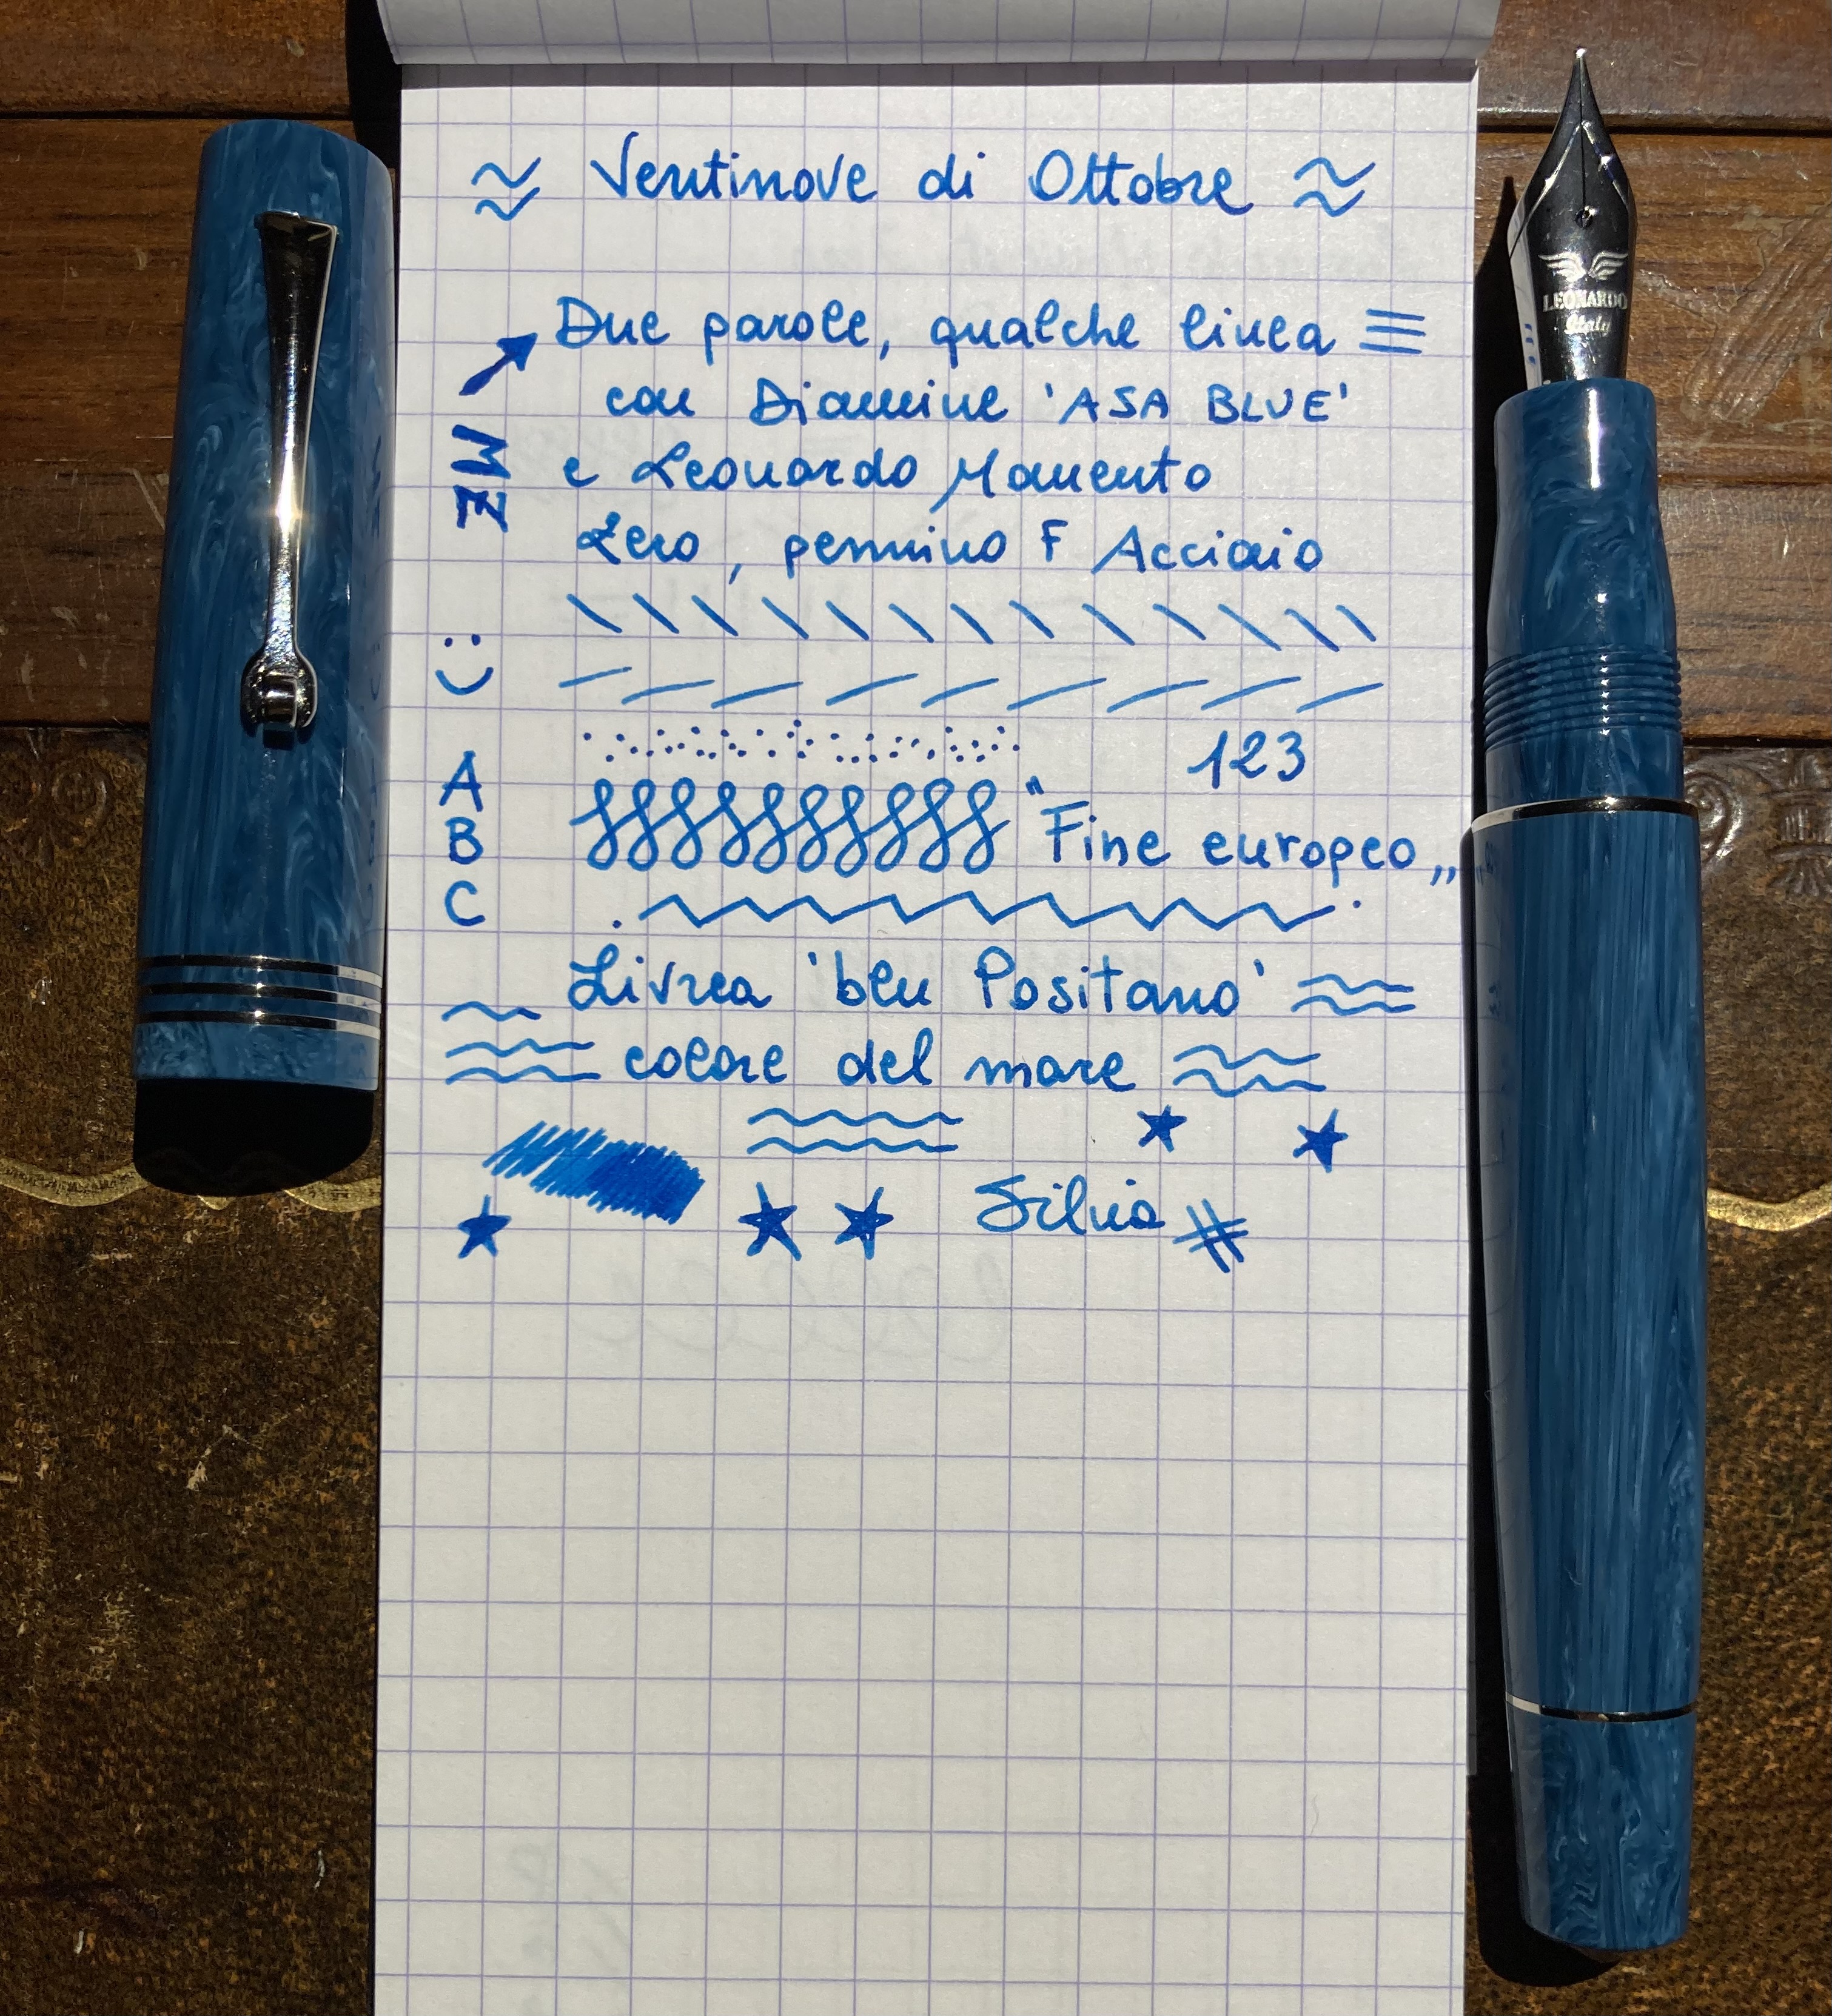 Ventinove di Ottobre
Due parole, qualche linea
con Diamine 'ASA BLUE'
e Leonardo Momento
Zero, pennino F Acciaio
MZ
123
A
B
C
"Fine europeo„
Livrea 'blu Positano'
colore del mare
Silvia
LEONARDO
Italy